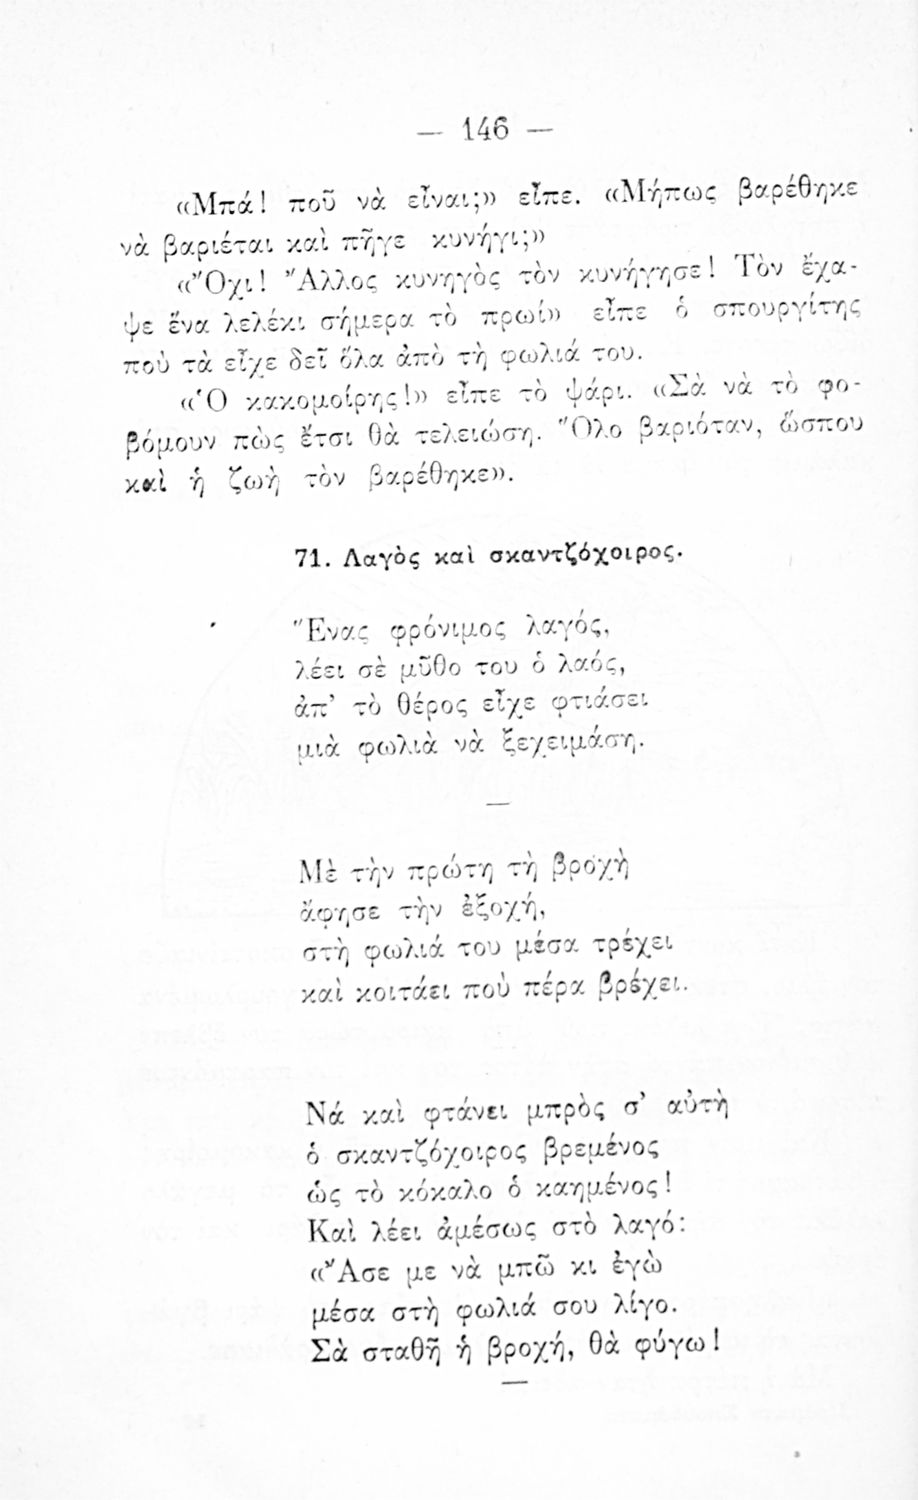 — 146 —
«Μπά! ποῦ νὰ εἶναι;» εἶπε. «Μήπως βαρέθηκε
νὰ βαριέται καὶ πῆγε κυνήγι;»
«Ὄχι! Ἄλλος κυνηγὸς τὸν κυνήγησε! Τὸν ἔχα-
ψε ἕνα λελέκι σήμερα τὸ πρωί» εἶπε ὁ σπουργίτης
ποὺ τὰ εἶχε δεῖ ὅλα ἀπὸ τὴ φωλιά του.
«Ὁ κακομοίρης!» εἶπε τὸ ψάρι. «Σὰ νὰ τὸ φο-
βόμουν πὼς ἔτσι θὰ τελειώση. Ὅλο βαριόταν, ὥσπου
καὶ ἡ ζωὴ τὸν βαρέθηκε».
71. Λαγὸς καὶ σκαντζόχοιρος.
Ἕνας φρόνιμος λαγός,
λέει σὲ μῦθο του ὁ λαός,
ἀπ’ τὸ θέρος εἶχε φτιάσει
μιὰ φωλιὰ νὰ ξεχειμάση.
—
Μὲ τὴν πρώτη τὴ βροχὴ
ἄφησε τὴν ἐξοχή,
στὴ φωλιά του μέσα τρέχει
καὶ κοιτάει ποὺ πέρα βρέχει.
Νά καὶ φτάνει μπρὸς σ’ αὐτὴ
ὁ σκαντζόχοιρος βρεμένος
ὡς τὸ κόκαλο ὁ καημένος!
Καὶ λέει ἀμέσως στὸ λαγό:
«Ἄσε με νὰ μπῶ κι ἐγὼ
μέσα στὴ φωλιά σου λίγο.
Σὰ σταθῆ ἡ βροχή, θὰ φύγω!
—